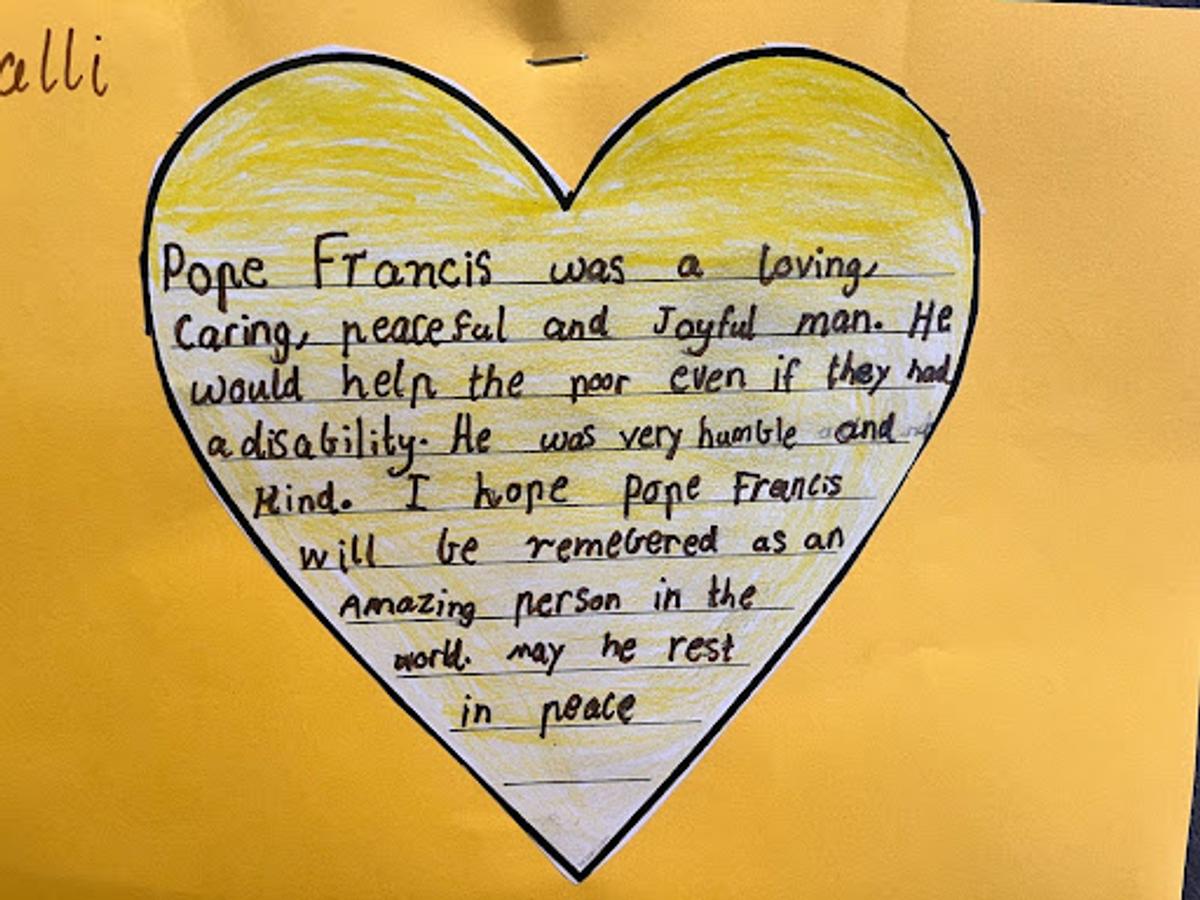 alli
Pope Francis was a loving,
Caring, peaceful and Joyful man. He
would help the poor even if they had
a disability. He was very humble and
Kind. I hope Pope Francis
will be remebered as an
Amazing person in the
world. may he rest
in peace